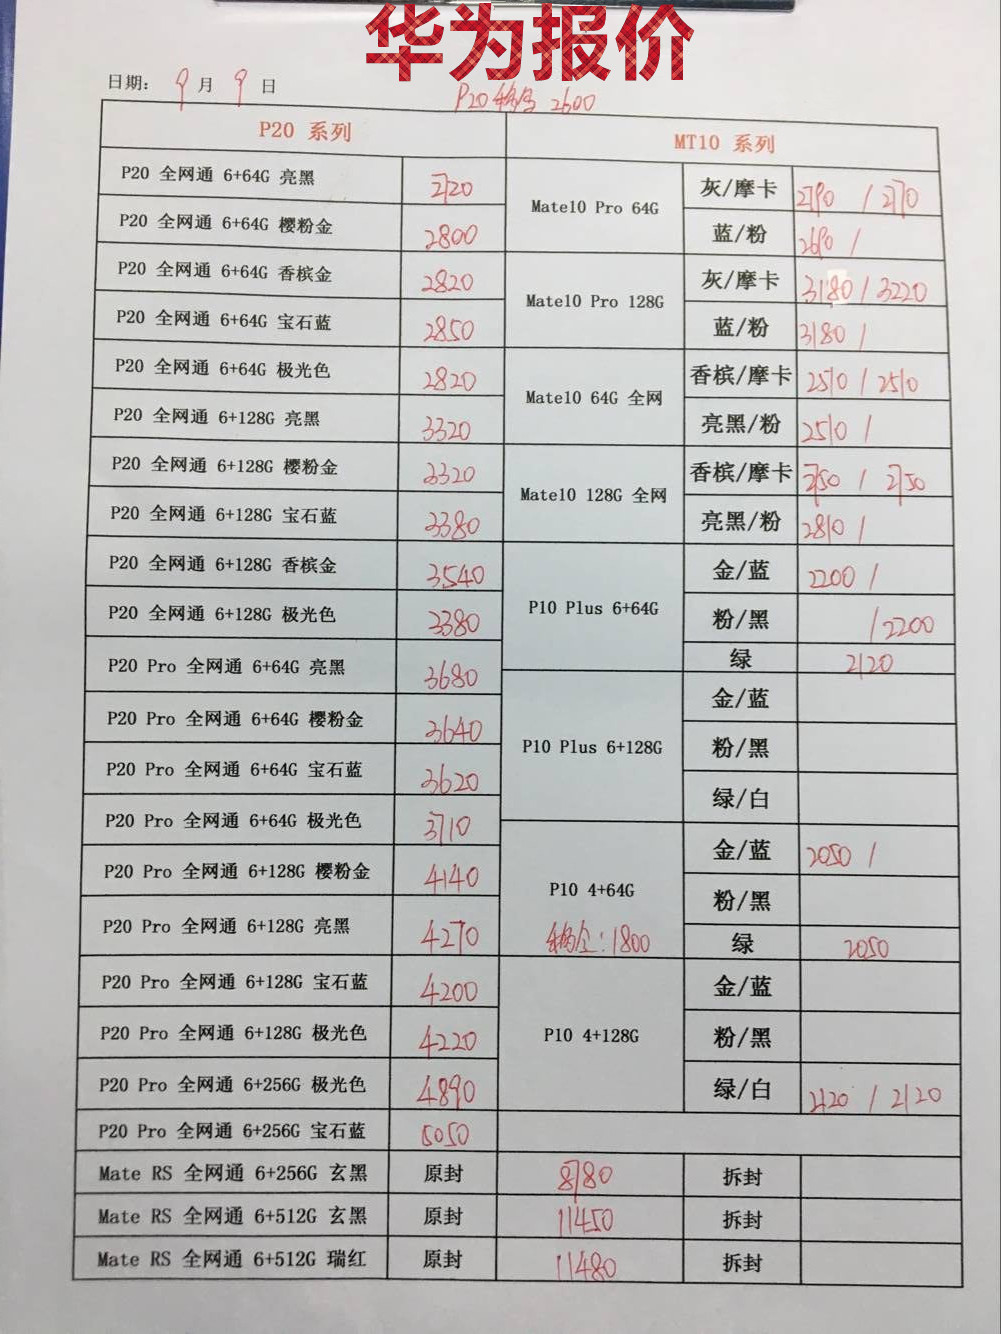 华为报价
日期: 9 月 9 日
P20 移合 2600
P20 系列 MT10 系列
P20 全网通 6+64G 亮黑 2720
P20 全网通 6+64G 樱粉金 2800
P20 全网通 6+64G 香槟金 2820
P20 全网通 6+64G 宝石蓝 2850
P20 全网通 6+64G 极光色 2820
P20 全网通 6+128G 亮黑 3320
P20 全网通 6+128G 樱粉金 3320
P20 全网通 6+128G 宝石蓝 3380
P20 全网通 6+128G 香槟金 3540
P20 全网通 6+128G 极光色 3380
P20 Pro 全网通 6+64G 亮黑 3680
P20 Pro 全网通 6+64G 樱粉金 3640
P20 Pro 全网通 6+64G 宝石蓝 3620
P20 Pro 全网通 6+64G 极光色 3710
P20 Pro 全网通 6+128G 樱粉金 4140
P20 Pro 全网通 6+128G 亮黑 4270
P20 Pro 全网通 6+128G 宝石蓝 4200
P20 Pro 全网通 6+128G 极光色 4220
P20 Pro 全网通 6+256G 极光色 4890
P20 Pro 全网通 6+256G 宝石蓝 5050
Mate10 Pro 64G
灰/摩卡 2790 / 2770
蓝/粉 2690 /
Mate10 Pro 128G
灰/摩卡 3180 / 3220
蓝/粉 3180 /
Mate10 64G 全网
香槟/摩卡 2510 / 2510
亮黑/粉 2510 /
Mate10 128G 全网
香槟/摩卡 2750 / 2750
亮黑/粉 2810 /
P10 Plus 6+64G
金/蓝 2200 /
粉/黑 / 2200
绿 2120
P10 Plus 6+128G
金/蓝
粉/黑
绿/白
P10 4+64G
1800
金/蓝 2050 /
粉/黑
绿 2050
P10 4+128G
金/蓝
粉/黑
绿/白 2120 / 2120
Mate RS 全网通 6+256G 玄黑 原封 8780 拆封
Mate RS 全网通 6+512G 玄黑 原封 11450 拆封
Mate RS 全网通 6+512G 瑞红 原封 11480 拆封